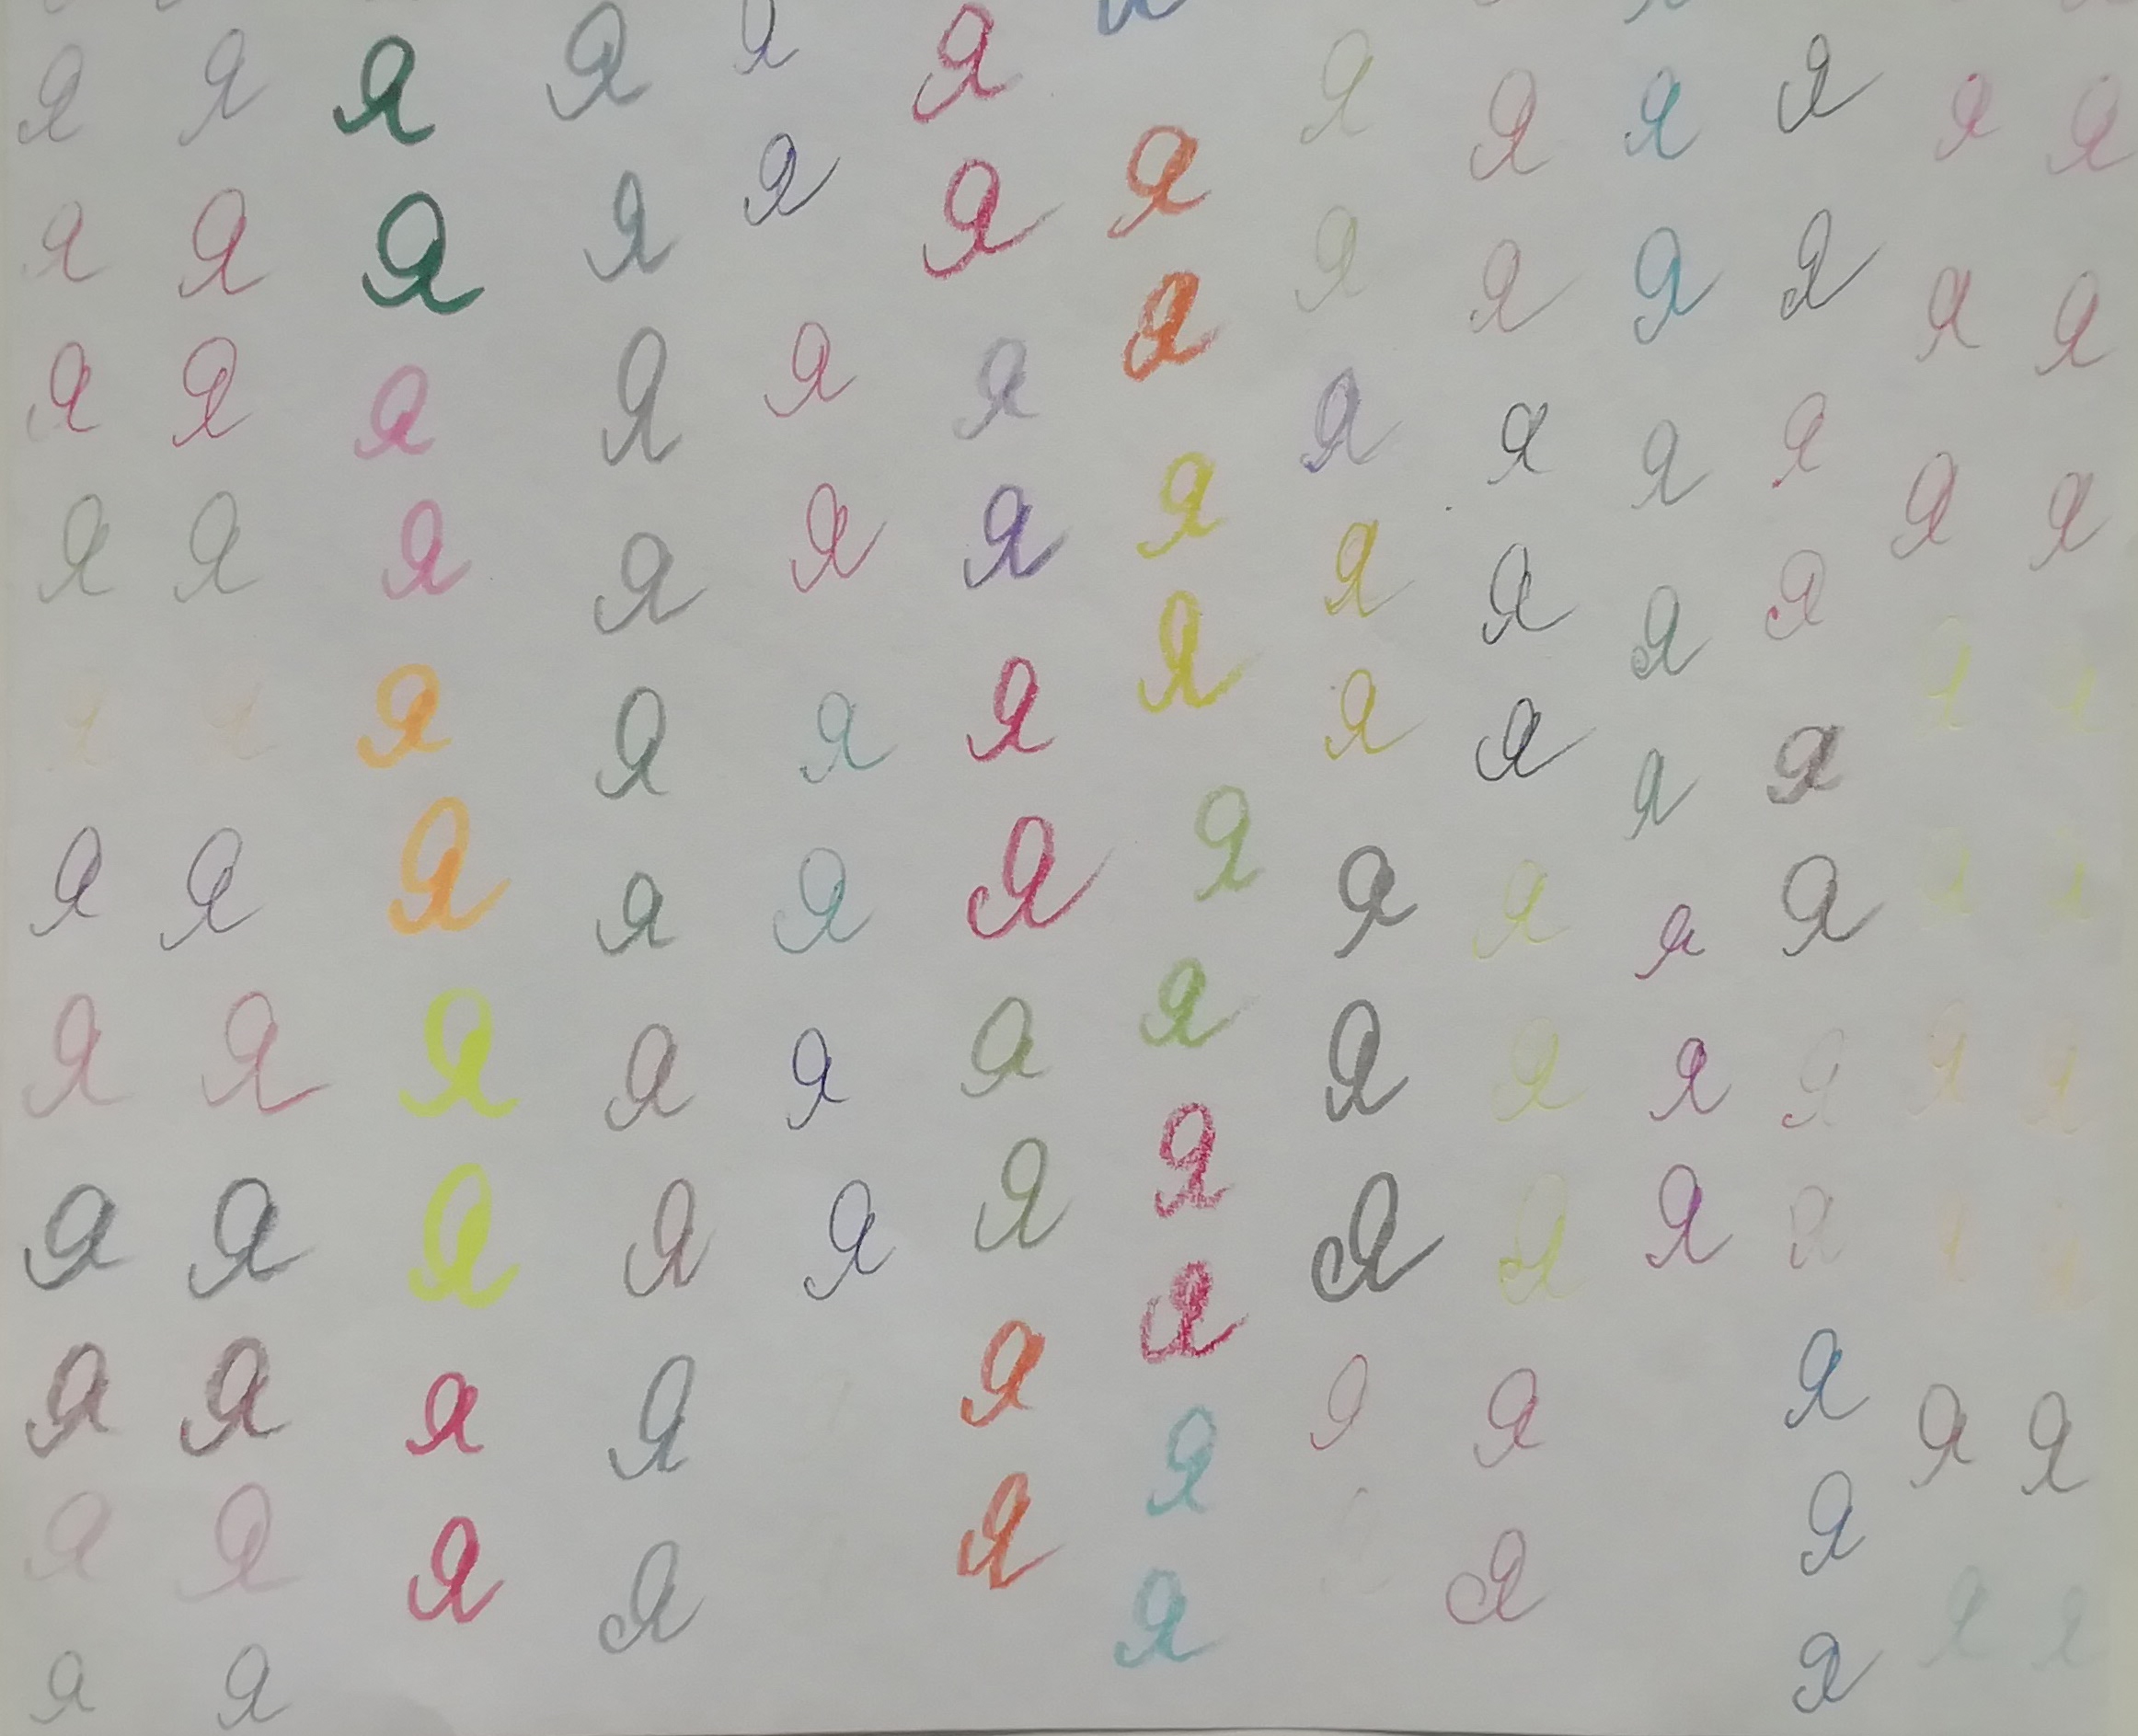 я я я я я я я я я я я я
я я я я я я я я я я я я я
я я я я я я я я я я я я я
я я я я я я я я я я я я я
я я я я я я я я я я я я я
я я я я я я я я я я я я я
я я я я я я я я я я я я я
я я я я я я я я я я я я я
я я я я я я я я я я я
я я я я я я я я я я
я я я